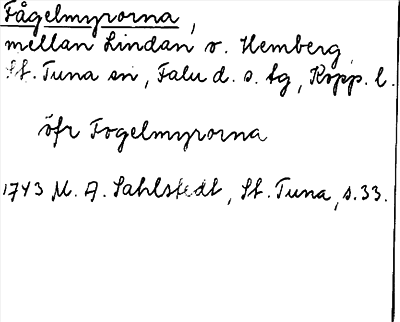 Fågelmyrorna,
mellan Lindan o. Hemberg
St. Tuna sn, Falu d. s. tg, Kopp. l.
öfr Fogelmyrorna
1743 M. A. Sahlstedt, St. Tuna, s.33.